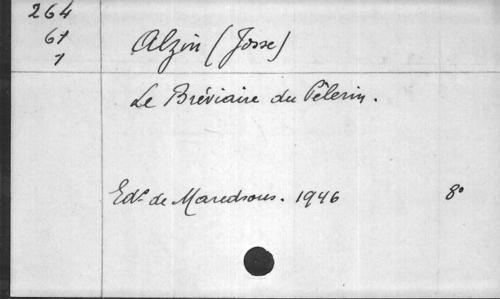 264
61
1
Alzin (Josse)
Le Bréviaire du Pèlerin.
Edt de Maredsous. 1946 8°